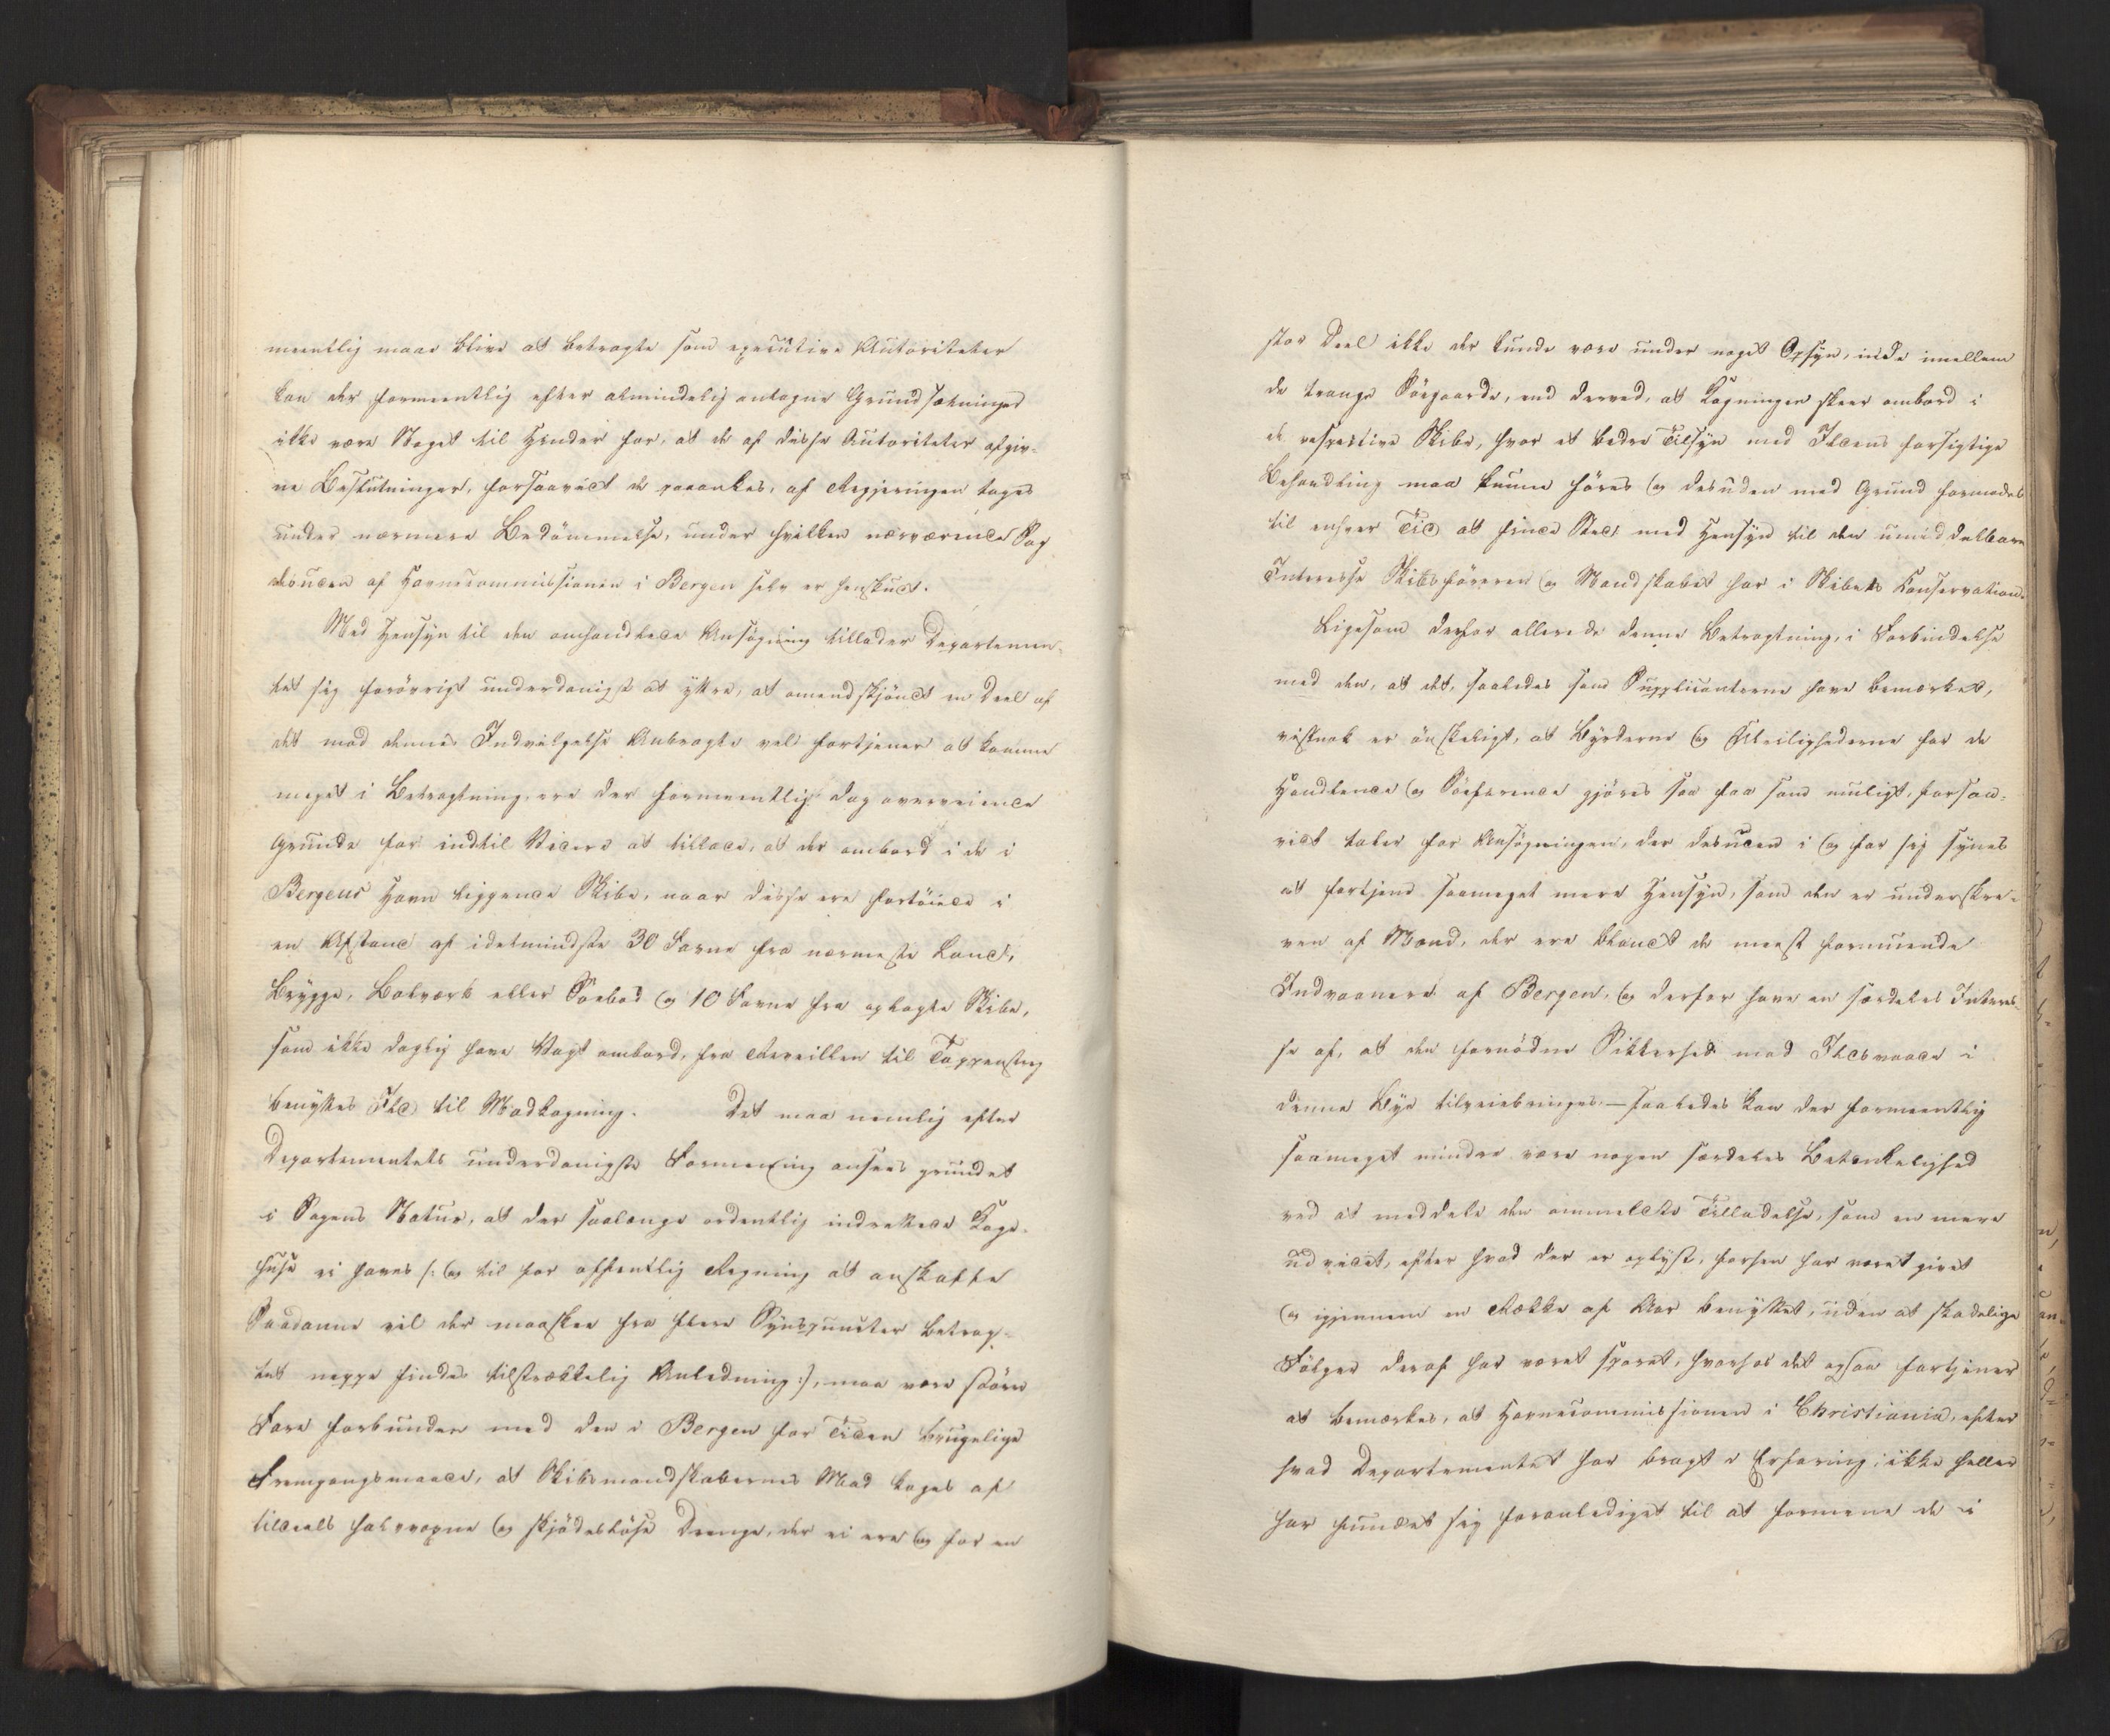 meentlig maae blive at betragte som executive Autoriteter
kan der formeentlig efter almindelig antagne Grundsætninger
ikke være Noget til Hinder for, at de af disse Autoriteter afgiv-
ne Beslutninger, forsaavidt de paaankes, af Regjeringen tages
under nærmere Bedömmelse, under hvilken nærværende Sag
desuden af Havnecommissionen i Bergen selv er henskudt.
Med Hensyn til den omhandlede Ansögning tillader Departemen-
tet sig forövrigt underdanigst at yttre, at omendskjöndt en Deel af
det mod dennes Indvilgelse Anbragte vel fortjener at komme
meget i Betragtning, ere der formeentlig dog overveiende
Grunde for indtil Videre at tillade, at der ombord i de i
Bergens Havn liggende Skibe, naar disse ere fortöiede i
en Afstand af idetmindste 30 Favne fra nærmeste Land,
Brygge, Bolværk eller Söebod og 10 Favne fra oplagte Skibe,
som ikke daglig have Vagt ombord, fra Reveillen til Tappenstreg
benyttes Ild til Madkogning. Det maa nemlig efter
Departementets underdanigste Formening ansees grundet
i Sagens Natur, at der saalænge ordentlig indrettede Koge-
huse ei haves /: og til for offentlig Regning at anskaffe
Saadanne vil der maaskee fra flere Synspuncter betrag-
tet neppe findes tilstrækkelig Anledning :/, maa være större
Fare forbunden med den i Bergen for Tiden brugelige
Fremgangsmaade, at Skibsmandskabernes Mad koges af
tildeels halvvoxne og skjödeslöse Drenge, der ei ere og for en
stor Deel ikke der kunde være under noget Opsyn, inde imellem
de trange Söegaarde, end derved, at Kogningen skeer ombord i
de respective Skibe, hvor et bedre Tilsyn med Ildens forsigtige
Behandling maa kunne föres og desuden med Grund formodes
til enhver Tid at finde Sted med Hensyn til den umiddelbare
Interesse Skibsföreren og Mandskabet har i Skibets Conservation.
Ligesom derfor allerede denne Betragtning, i Forbindelse
med den, at det, saaledes som Supplicanterne have bemærket,
vistnok er önskeligt, at Byrderne og Uleilighederne for de
Handlende og Söefarende gjöres saa faa som muligt, forsaa-
vidt taler for Ansögningen, der desuden i og for sig synes
at fortjene saameget mere Hensyn, som den er underskre-
ven af Mænd, der ere blandt de meest formuende
Indvaanere af Bergen, og derfor have en særdeles Interes-
se af, at den fornödne Sikkerhed mod Ildsvaade i
denne Bye tilveiebringes, — saaledes kan der formeentlig
saameget mindre være nogen særdeles Betænkelighed
ved at meddele den ommeldte Tilladelse, som en mere
udvidet, efter hvad der er oplyst, forhen har været givet
og igjennem en Række af Aar benyttet, uden at skadelige
Fölger deraf har været sporet, hvorhos det ogsaa fortjener
at bemærkes, at Havnecommissionen i Christiania, efter
hvad Departementet har bragt i Erfaring, ikke heller
har fundet sig foranlediget til at formene de i